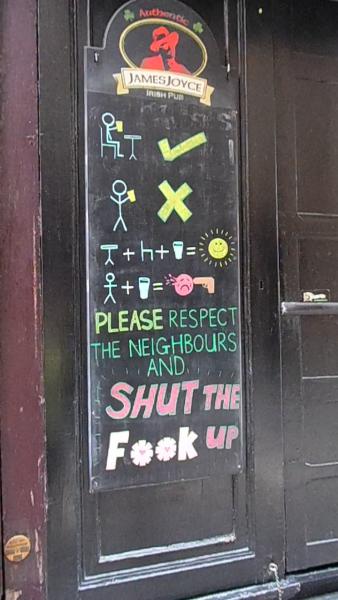 Authentic
JAMES JOYCE
IRISH PUB
+ + =
+ =
PLEASE RESPECT
THE NEIGHBOURS
AND
SHUT THE
F**K UP